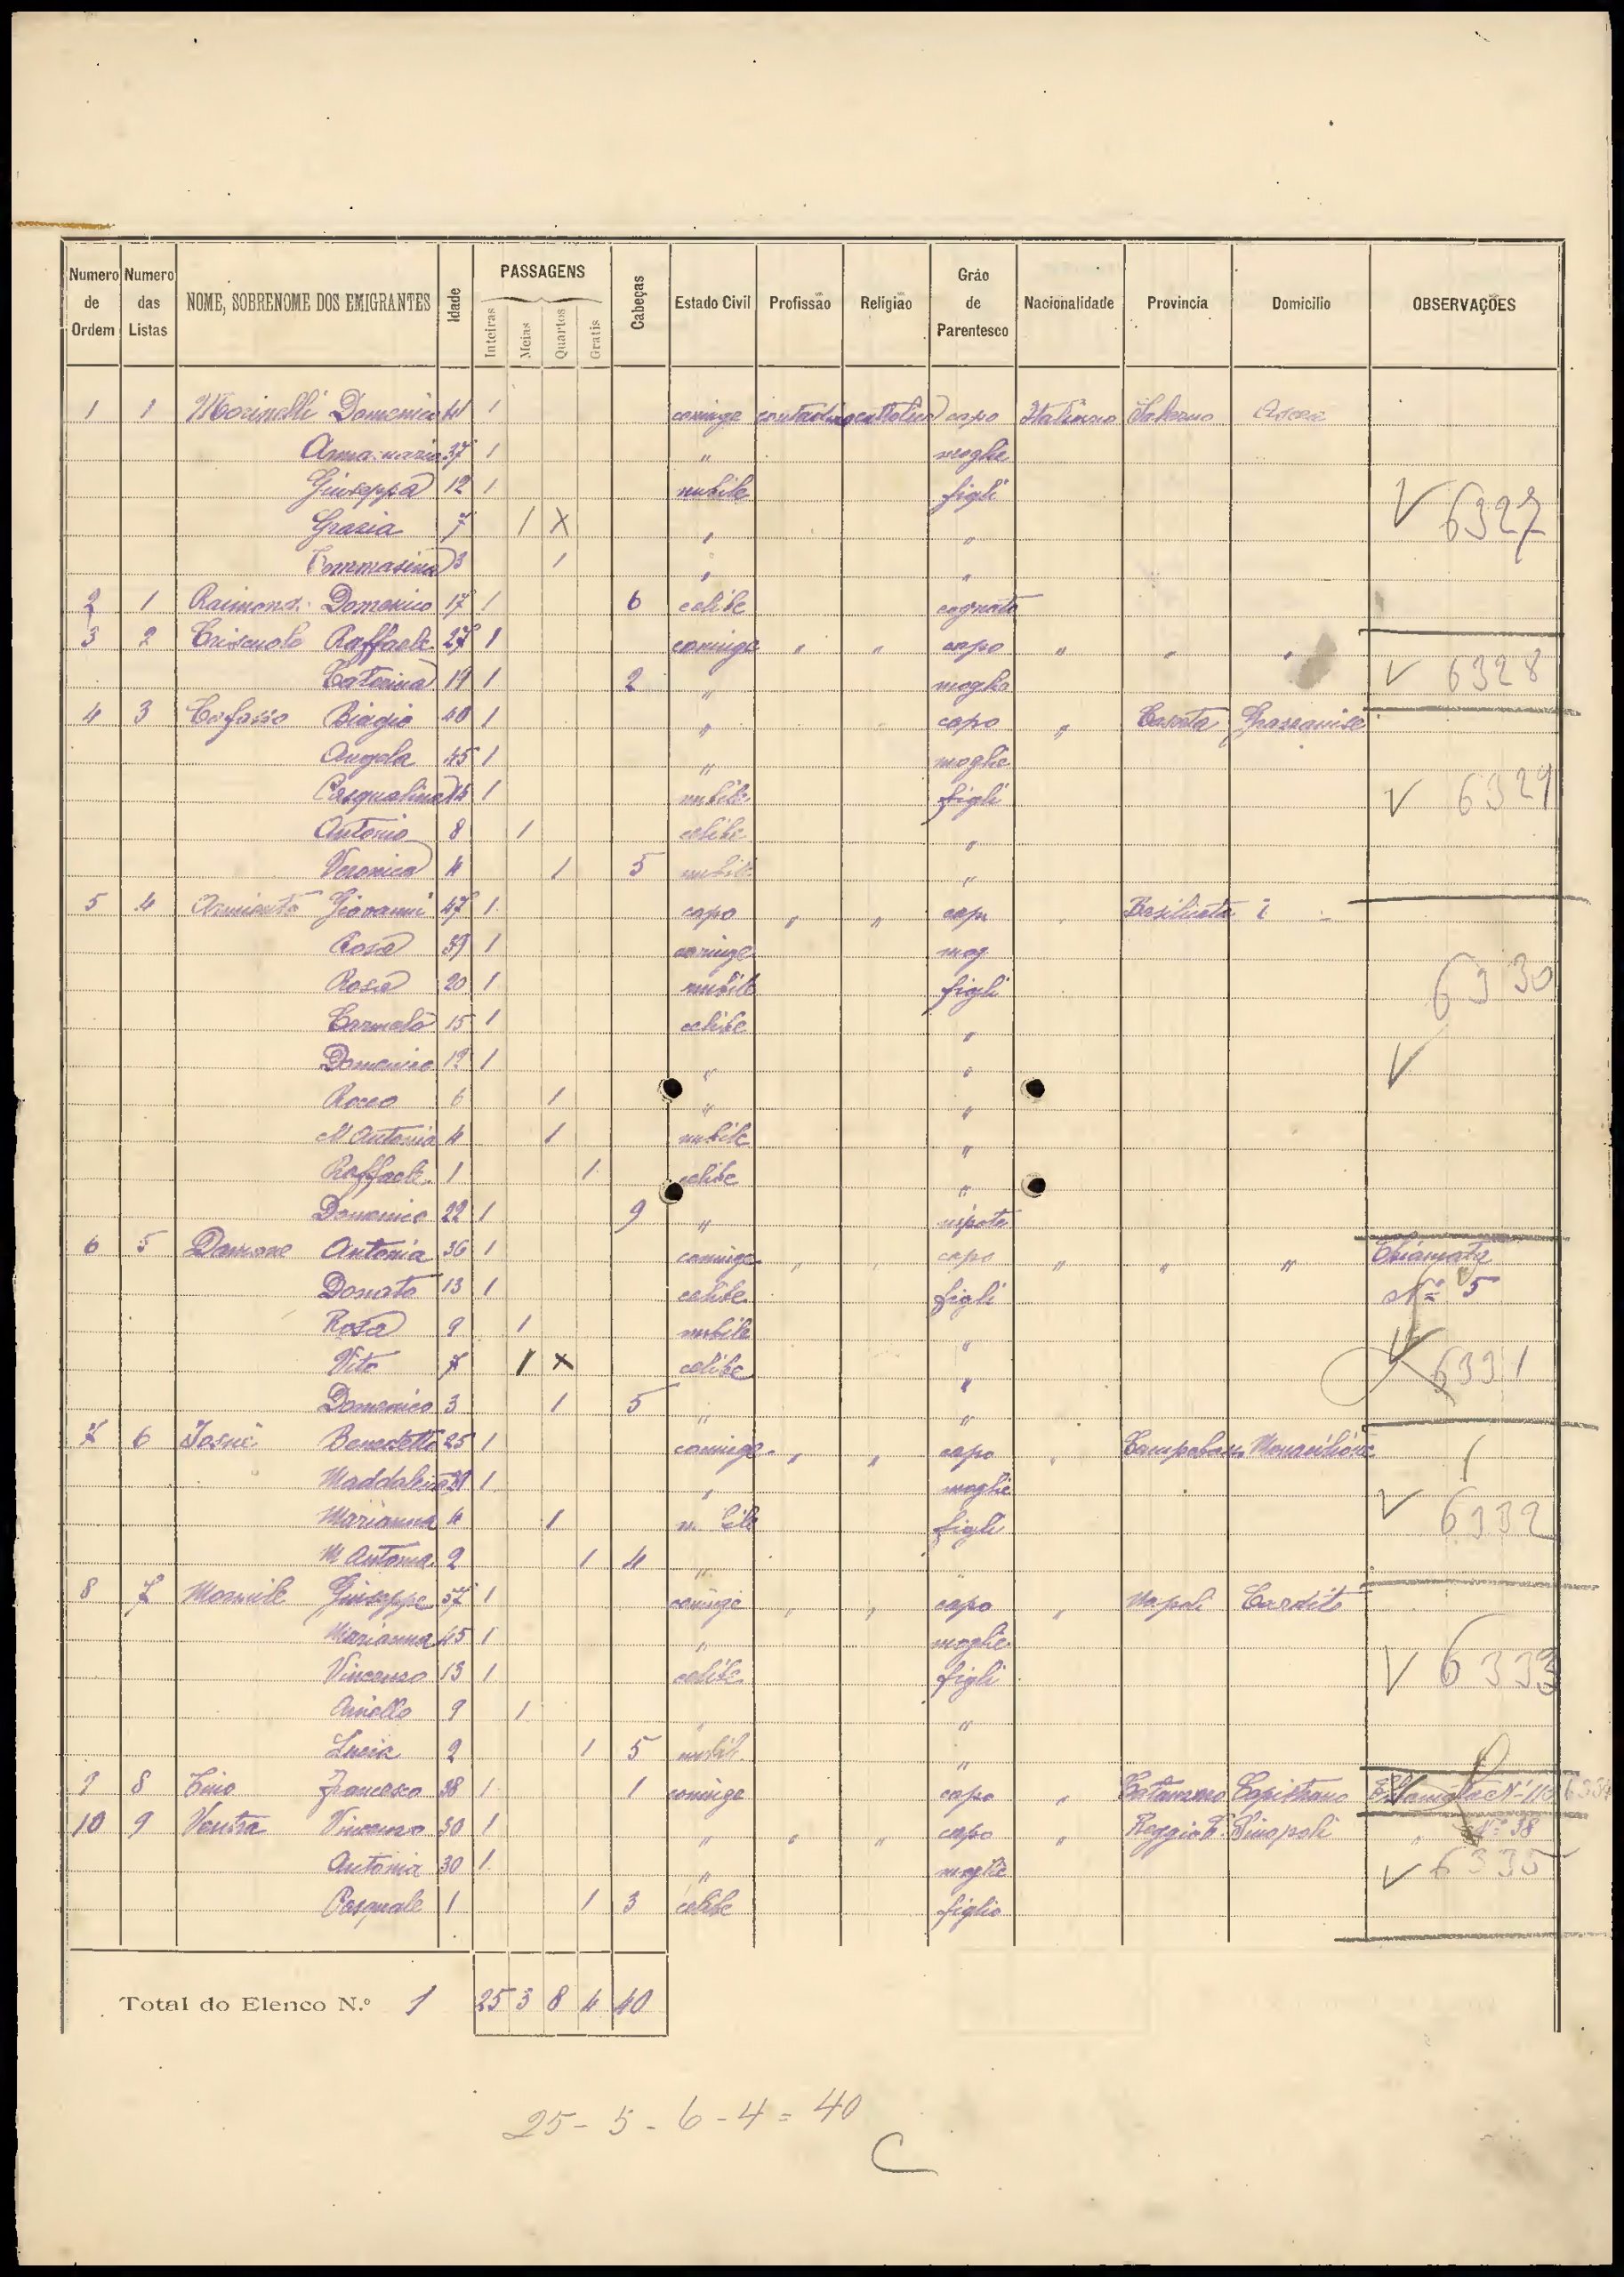 Numero de Ordem | Numero das Listas | NOME, SOBRENOME DOS EMIGRANTES | Idade | PASSAGENS Inteiras Meias Quartos Gratis | Cabeças | Estado Civil | Profissão | Religião | Gráo de Parentesco | Nacionalidade | Provincia | Domicilio | OBSERVAÇÕES
1 1 Morinelli Domenico 41 1 coniuge contadino cattolica capo Italiana Salerno Ascea
Anna maria 37 1 " moglie
Giuseppa 12 1 nubile figli V 6327
Grazia 7 1 X " "
Tommasina 3 1 " "
2 1 Raimondi Domenico 17 1 6 celibe cognato
3 2 Criscuolo Raffaele 27 1 coniuge " " capo " " "
Caterina 19 1 2 " moglie V 6328
4 3 Cafasso Biagio 40 1 " capo " Caserta Grazzanise
Angela 45 1 " moglie
Pasqualina 14 1 nubile figli V 6329
Antonio 8 1 celibe "
Veronica 4 1 5 nubile "
5 4 Giovanni 47 1 capo " " capo Basilicata
Rosa 39 1 coniuge mog
Rosa 20 1 nubile figli 6330
Carmelo 15 1 celibe "
Domenico 12 1 " " V
Rocco 6 1 " "
M Antonia 4 1 nubile "
Raffaele 1 1 celibe "
Domenico 22 1 9 " nipote
6 5 Damone Antonia 36 1 coniuge " " capo " " " Chiamata
Donato 13 1 celibe figli Nº 5
Rosa 9 1 nubile "
Vito 7 1 X celibe " 6331
Domenico 3 1 5 " "
7 6 Iosue Benedetto 25 1 coniuge " " capo " Campobasso
Maddalena 21 1 " moglie
Marianna 4 1 nubile figli V 6332
M Antonia 2 1 4 " "
8 7 Mormile Giuseppe 37 1 coniuge " " capo " Napoli Cardito
Marianna 45 1 " moglie
Vincenzo 13 1 celibe figli V 6333
Aniello 9 1 " "
Lucia 2 1 5 nubile "
9 8 Francesco 38 1 1 coniuge capo " Catanzaro Capistrano Chiamata Nº 110 6334
10 9 Ventra Vincenzo 30 1 " " " capo " Reggio C. Sinopoli " Nº 38
Antonia 30 1 " moglie V 6335
Pasquale 1 1 3 celibe figlio
Total do Elenco N.º 1 25 3 8 4 40
25 - 5 - 6 - 4 = 40
C